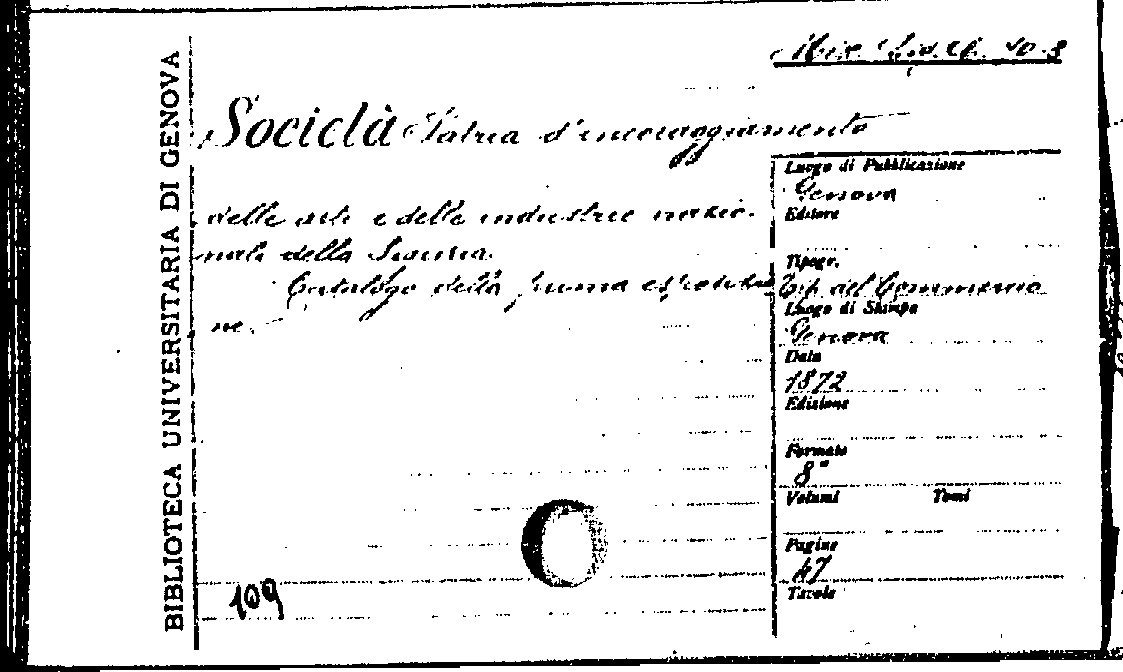 BIBLIOTECA UNIVERSITARIA DI GENOVA
Misc. Lig. 10. 3
Società Patria d'incoraggiamento
delle arti e delle industrie nazio-
nali della Liguria.
Catalogo della prima esposizio
ne.
109
Luogo di Pubblicazione
Genova
Editore
Tipogr.
Tip. del Commercio
Luogo di Stampa
Genova
Data
1872
Edizione
Formato
8°
Volumi Tomi
Pagine
47
Tavole